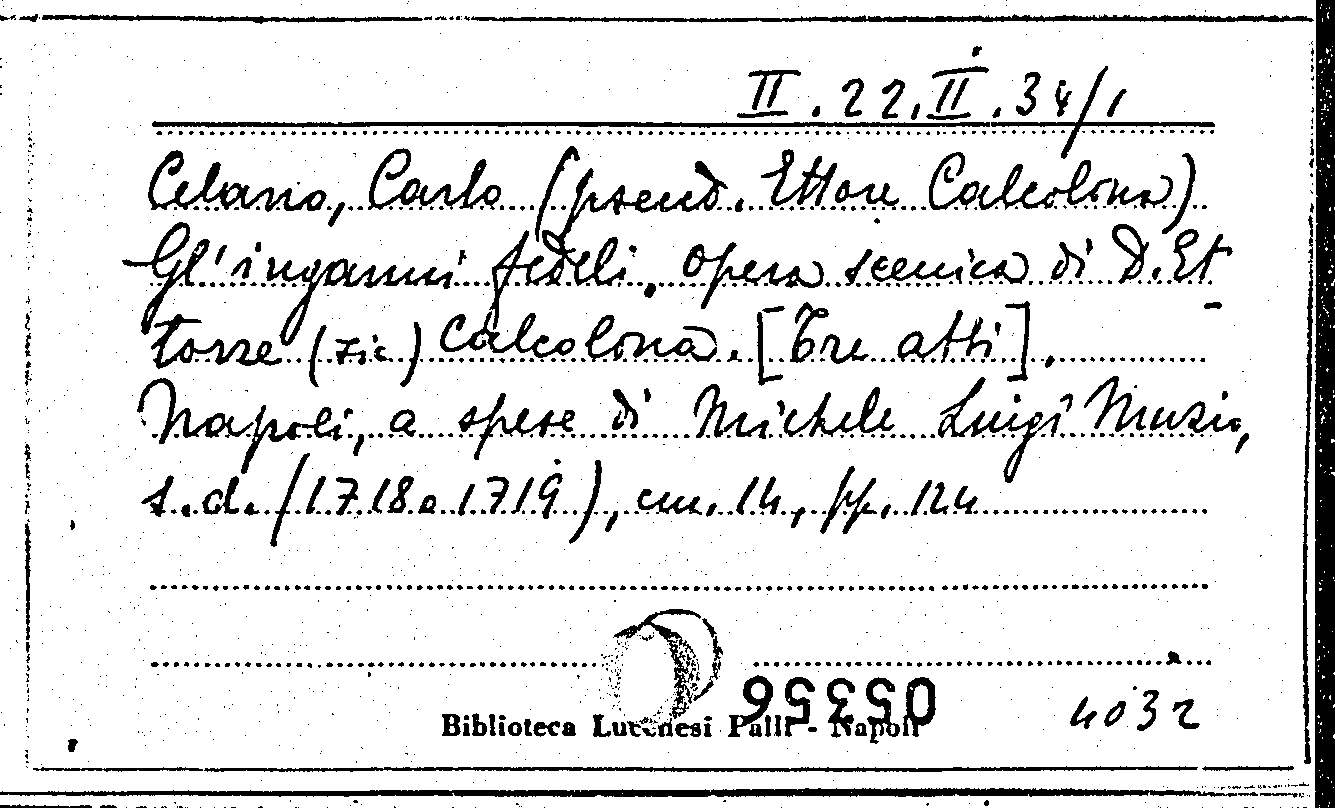 II.22.II.34/1
Celano, Carlo (pseud. Ettore Calcolona)
Gl'inganni fedeli. Opera scenica di D. Et-
torre (sic) Calcolona. [Tre atti].
Napoli, a spese di Michele Luigi Muzio,
s.d. (1718 o 1719), cm. 14, pp. 124
05356
Biblioteca Lucchesi Palli - Napoli
4032